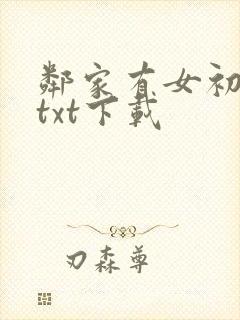 鄰家有女初
txt下載
刃森尊